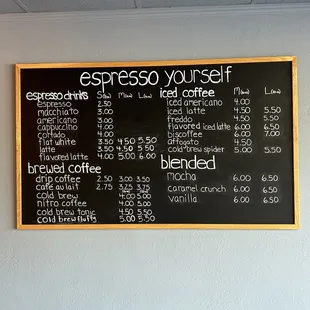 espresso yourself
espresso drinks S M L
espresso 2.50
macchiato 3.00
americano 3.00
cappuccino 4.00
cortado 4.00
flat white 3.50 4.50 5.50
latte 3.50 4.50 5.50
flavored latte 4.00 5.00 6.00
brewed coffee
drip coffee 2.50 3.00 3.50
cafe au lait 2.75 3.25 3.75
cold brew 4.00 5.00
nitro coffee 4.00 5.00
cold brew tonic 4.50 5.50
cold brew fluffy 5.00 5.50
iced coffee M L
iced americano 4.00
iced latte 4.50 5.50
freddo 4.50 5.50
flavored iced latte 5.00 6.50
biscoffee 6.00 7.00
affogato 4.50
cold-brew spider 5.00 5.50
blended
mocha 6.00 6.50
caramel crunch 6.00 6.50
vanilla 6.00 6.50